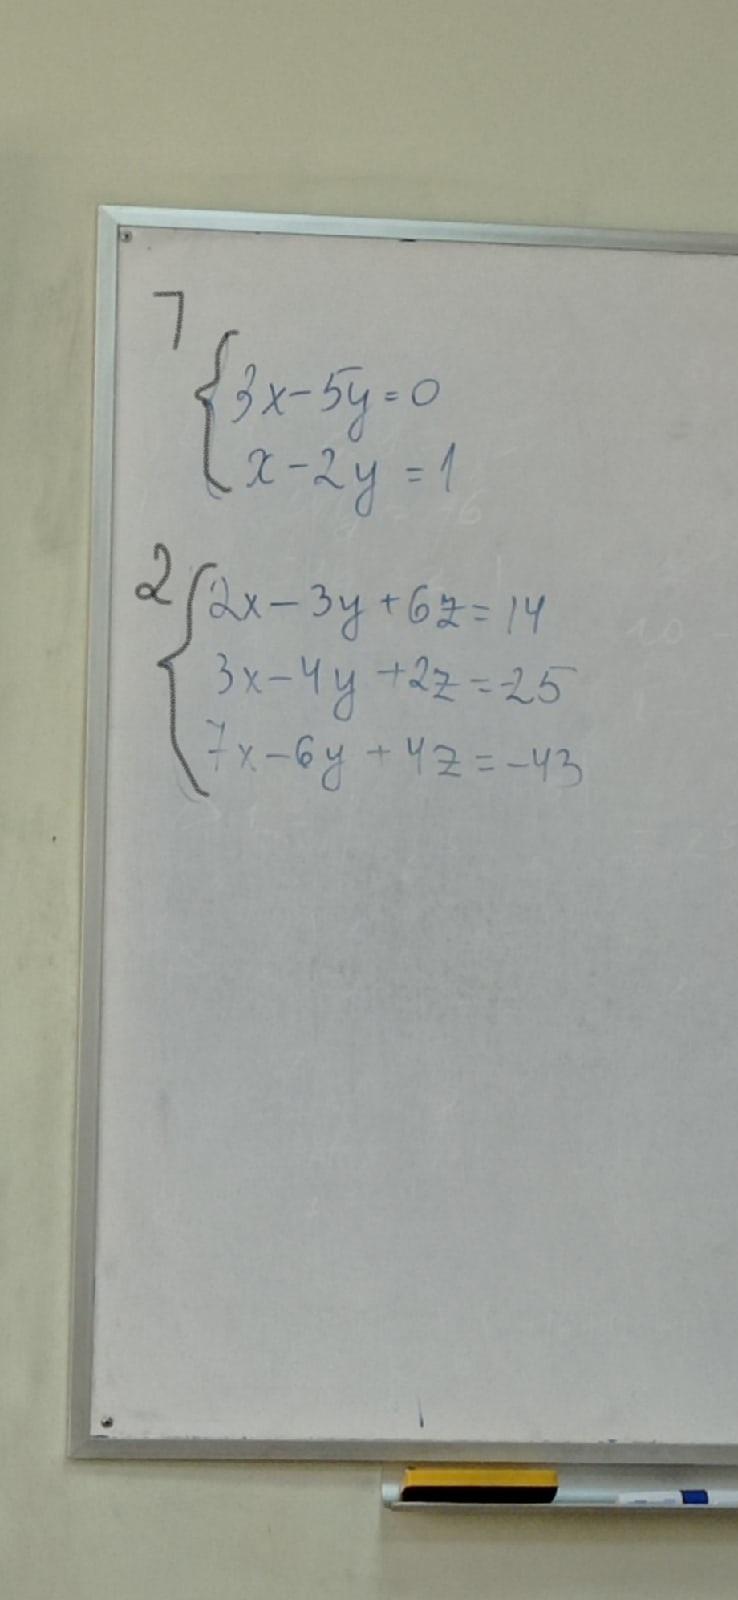 1
3x-5y=0
x-2y=1
2
2x-3y+6z=14
3x-4y+2z=-25
7x-6y+4z=-43